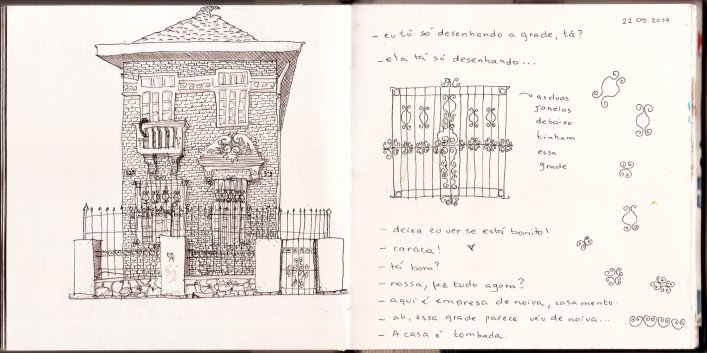 22.09.2014
- eu tô só desenhando a grade, tá?
- ela tá só desenhando...
as duas
janelas
debaixo
tinham
essa
grade
- deixa eu ver se está bonito!
- caraca!
- tá bom?
- nossa, fez tudo agora?
- aqui é empresa de noiva, casamento.
- ah, essa grade parece véu de noiva...
- A casa é tombada.